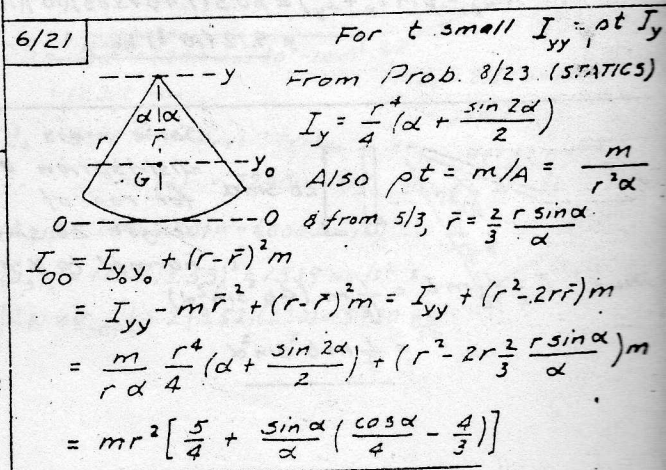 6/21
For t small I_yy = ρt I_y
From Prob. 8/23 (STATICS)
I_y = r⁴/4 (α + sin 2α / 2)
Also ρt = m/A = m / r²α
& from 5/3, r̄ = 2/3 r sin α / α
y
α α
r r̄
G y₀
O O
I_OO = I_y₀y₀ + (r - r̄)² m
= I_yy - m r̄² + (r - r̄)² m = I_yy + (r² - 2rr̄) m
= m / r α r⁴/4 (α + sin 2α / 2) + (r² - 2r 2/3 r sin α / α) m
= mr² [5/4 + sin α / α (cos α / 4 - 4/3)]